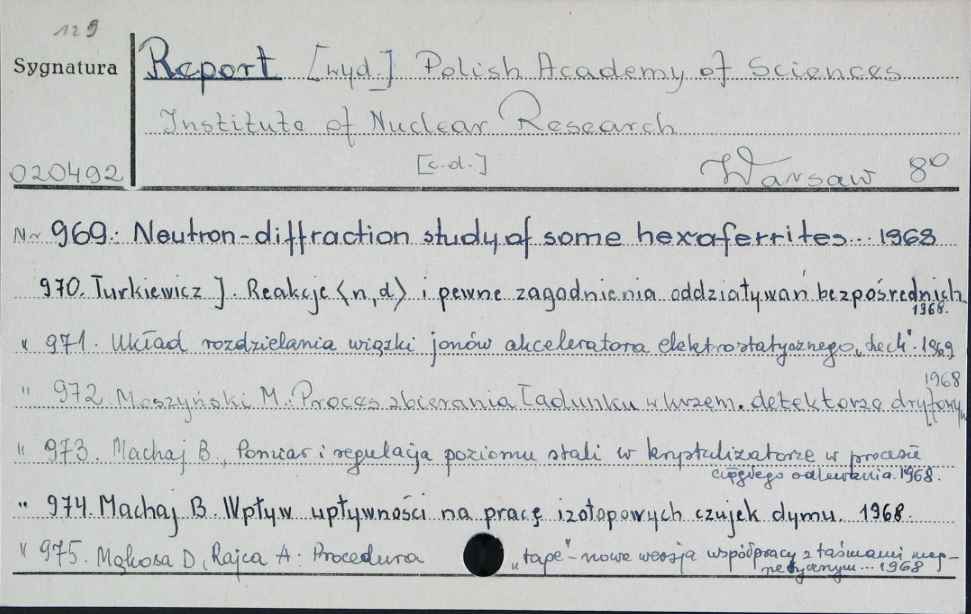 129
Sygnatura
Report [wyd.] Polish Academy of Sciences
Institute of Nuclear Research
020492 [c.d.] Warsaw 8º
Nr 969. Neutron-diffraction study of some hexaferrites... 1968
970. Turkiewicz J. Reakcje <n,d> i pewne zagadnienia oddziaływań bezpośrednich
1968.
" 971. Układ rozdzielania wiązki jonów akceleratora elektrostatycznego „Lech". 1969
1968
" 972 Moszyński M.: Proces zbierania ładunku w krzem. detektorze dryfowym
" 973. Machaj B., Pomiar i regulacja poziomu stali w krystalizatorze w procesie
ciągłego odlewania. 1968.
" 974. Machaj B. Wpływ upływności na pracę izotopowych czujek dymu. 1968.
" 975. Mąkosa D., Rajca A. Procedura „tape" - nowa wersja współpracy z taśmami mag-
netycznym... 1968